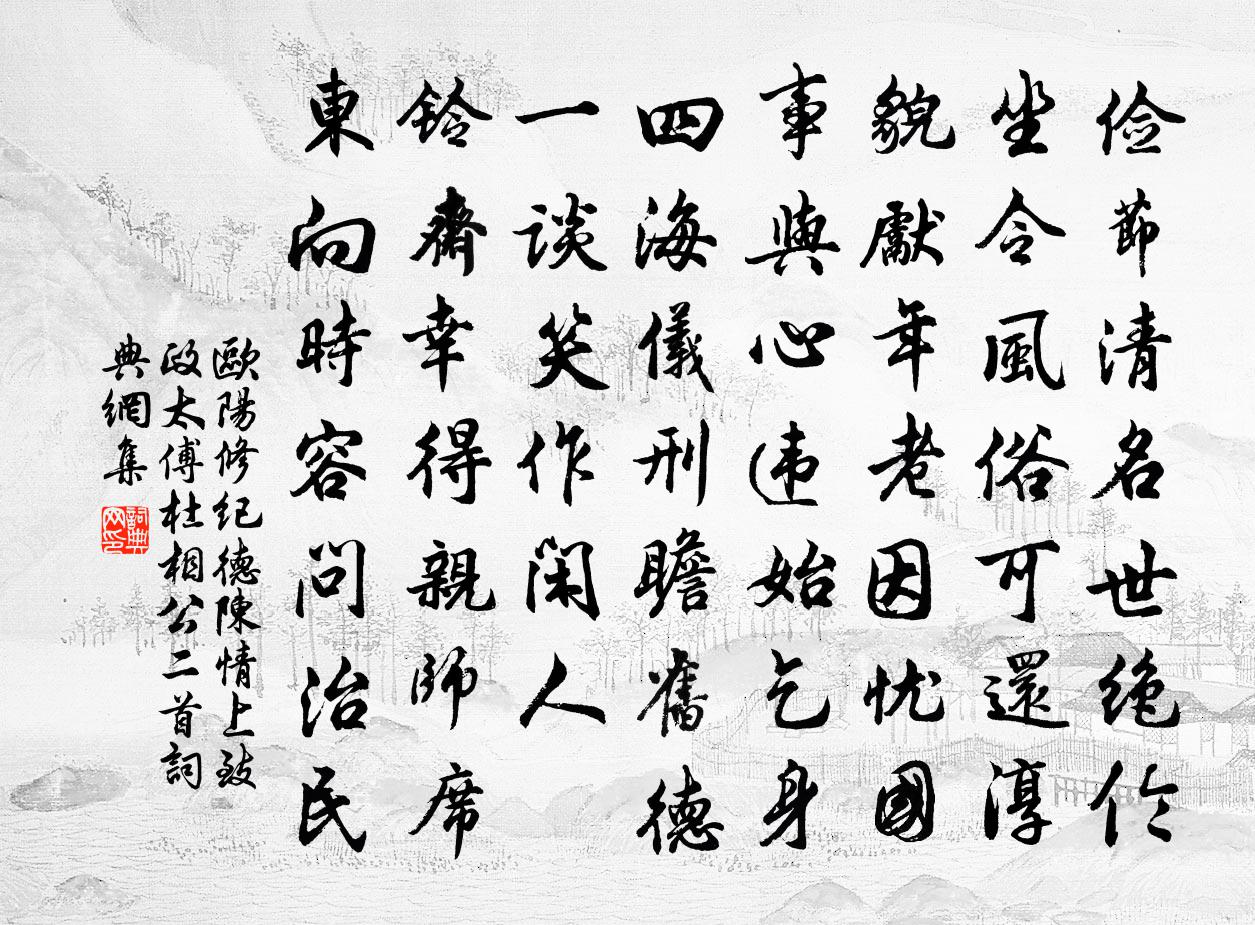 儉節清名世絕倫
坐令風俗可還淳
貌獻年老因忧國
事與心违始乞身
四海儀刑瞻舊德
一談笑作閑人
鈴齋幸得親師席
東向時容問治民
歐陽修紀德陳情上致
政太傅杜相公二首詞
典網集
詞典
网印